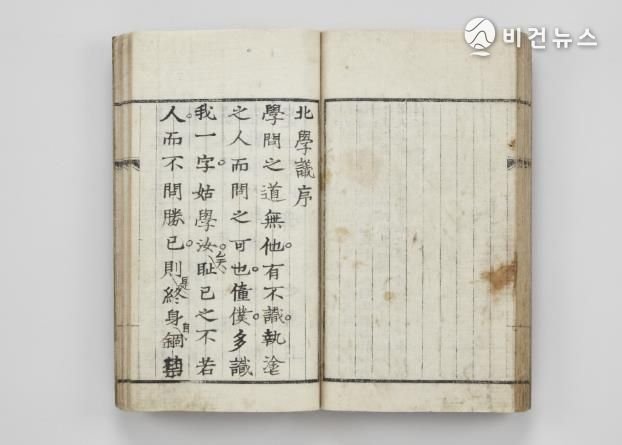 비건뉴스
北學議序
學問之道無他。有不識。執塗
之人而問之可也。僮僕多識
我一字。姑學汝。矣恥己之不若
人。而不問勝己。則是終身自錮